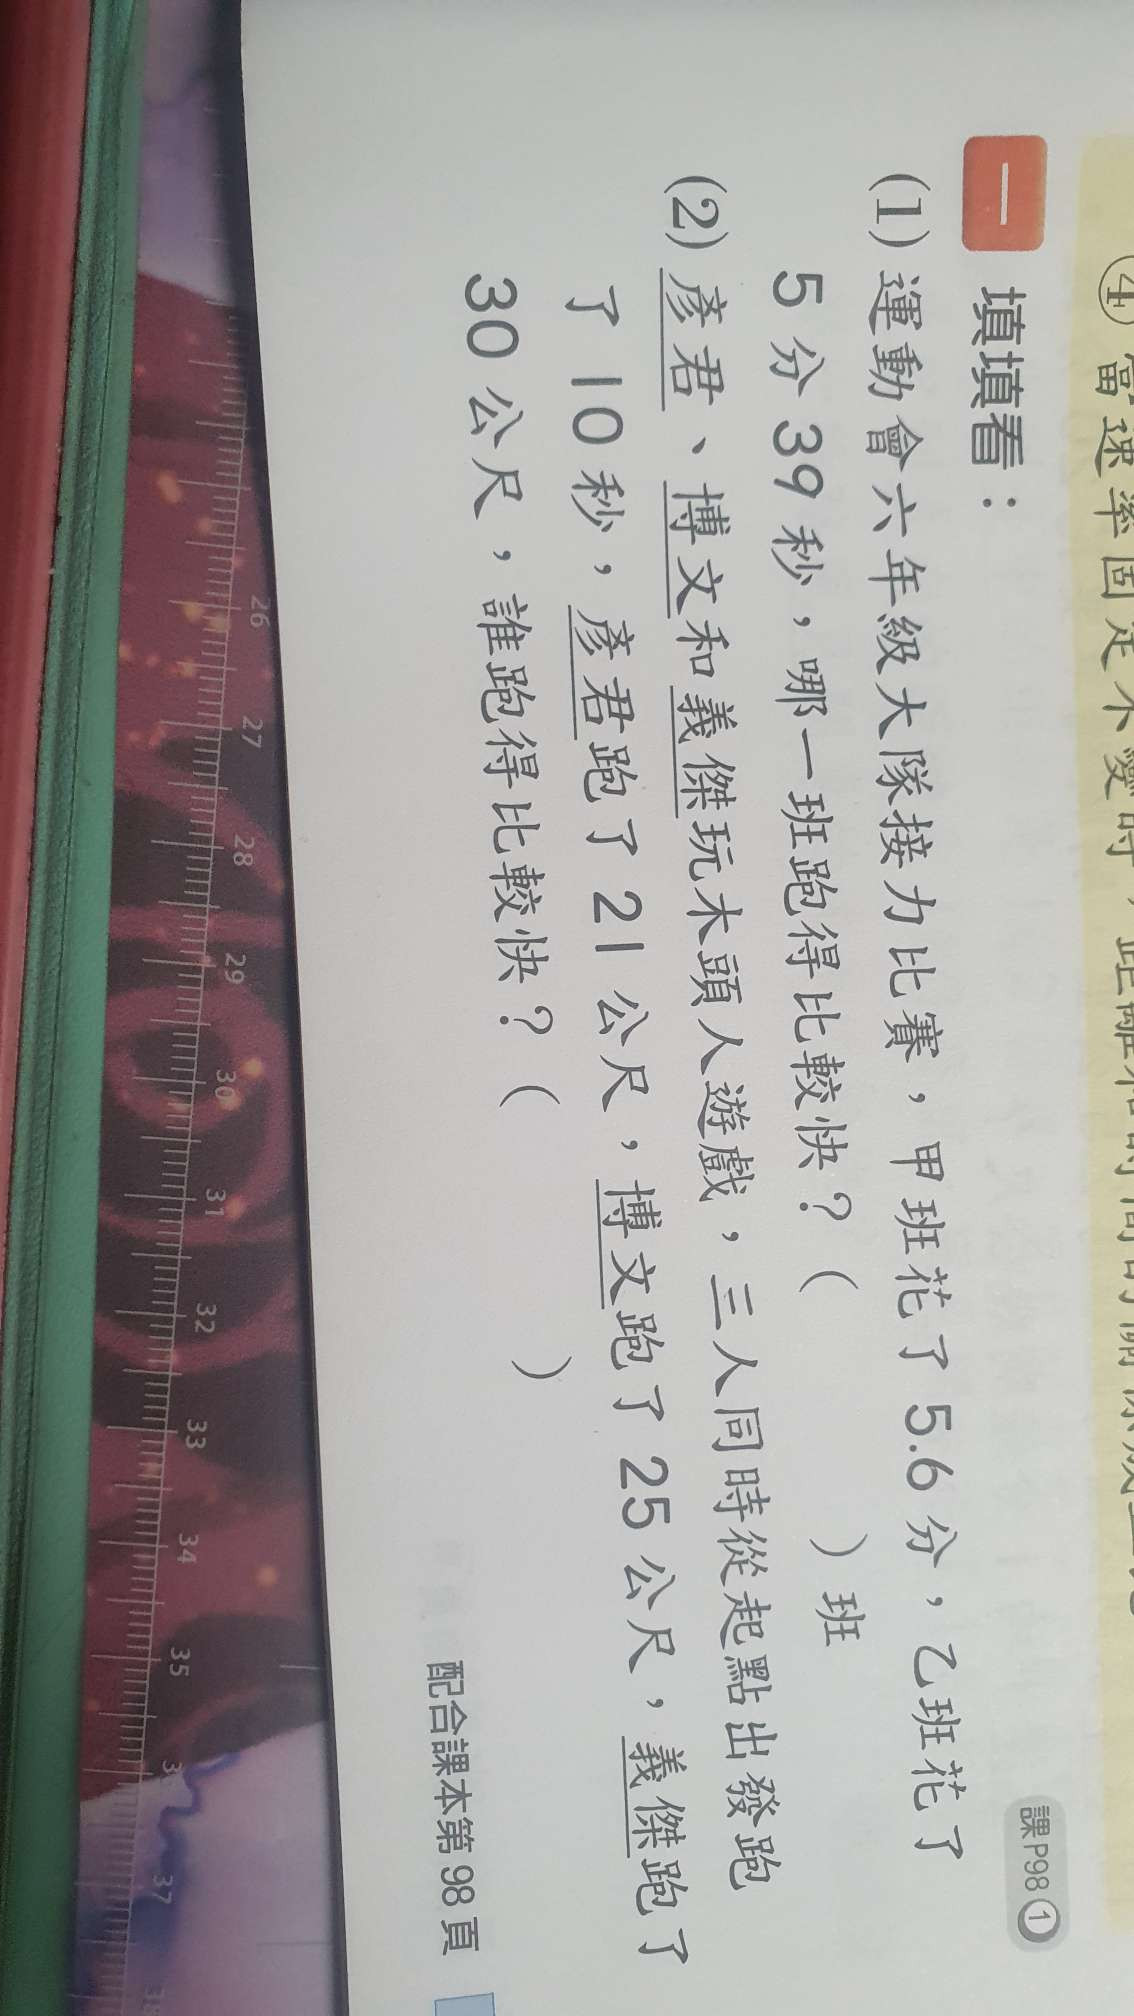 ④當速率固定不變時，距離和時間的關係成正比
一 填填看：
課P98①
(1) 運動會六年級大隊接力比賽，甲班花了5.6分，乙班花了
5分39秒，哪一班跑得比較快？（　　　）班
(2) 彥君、博文和義傑玩木頭人遊戲，三人同時從起點出發跑
了10秒，彥君跑了21公尺，博文跑了25公尺，義傑跑了
30公尺，誰跑得比較快？（　　　）
配合課本第98頁
26 27 28 29 30 31 32 33 34 35 36 37 38